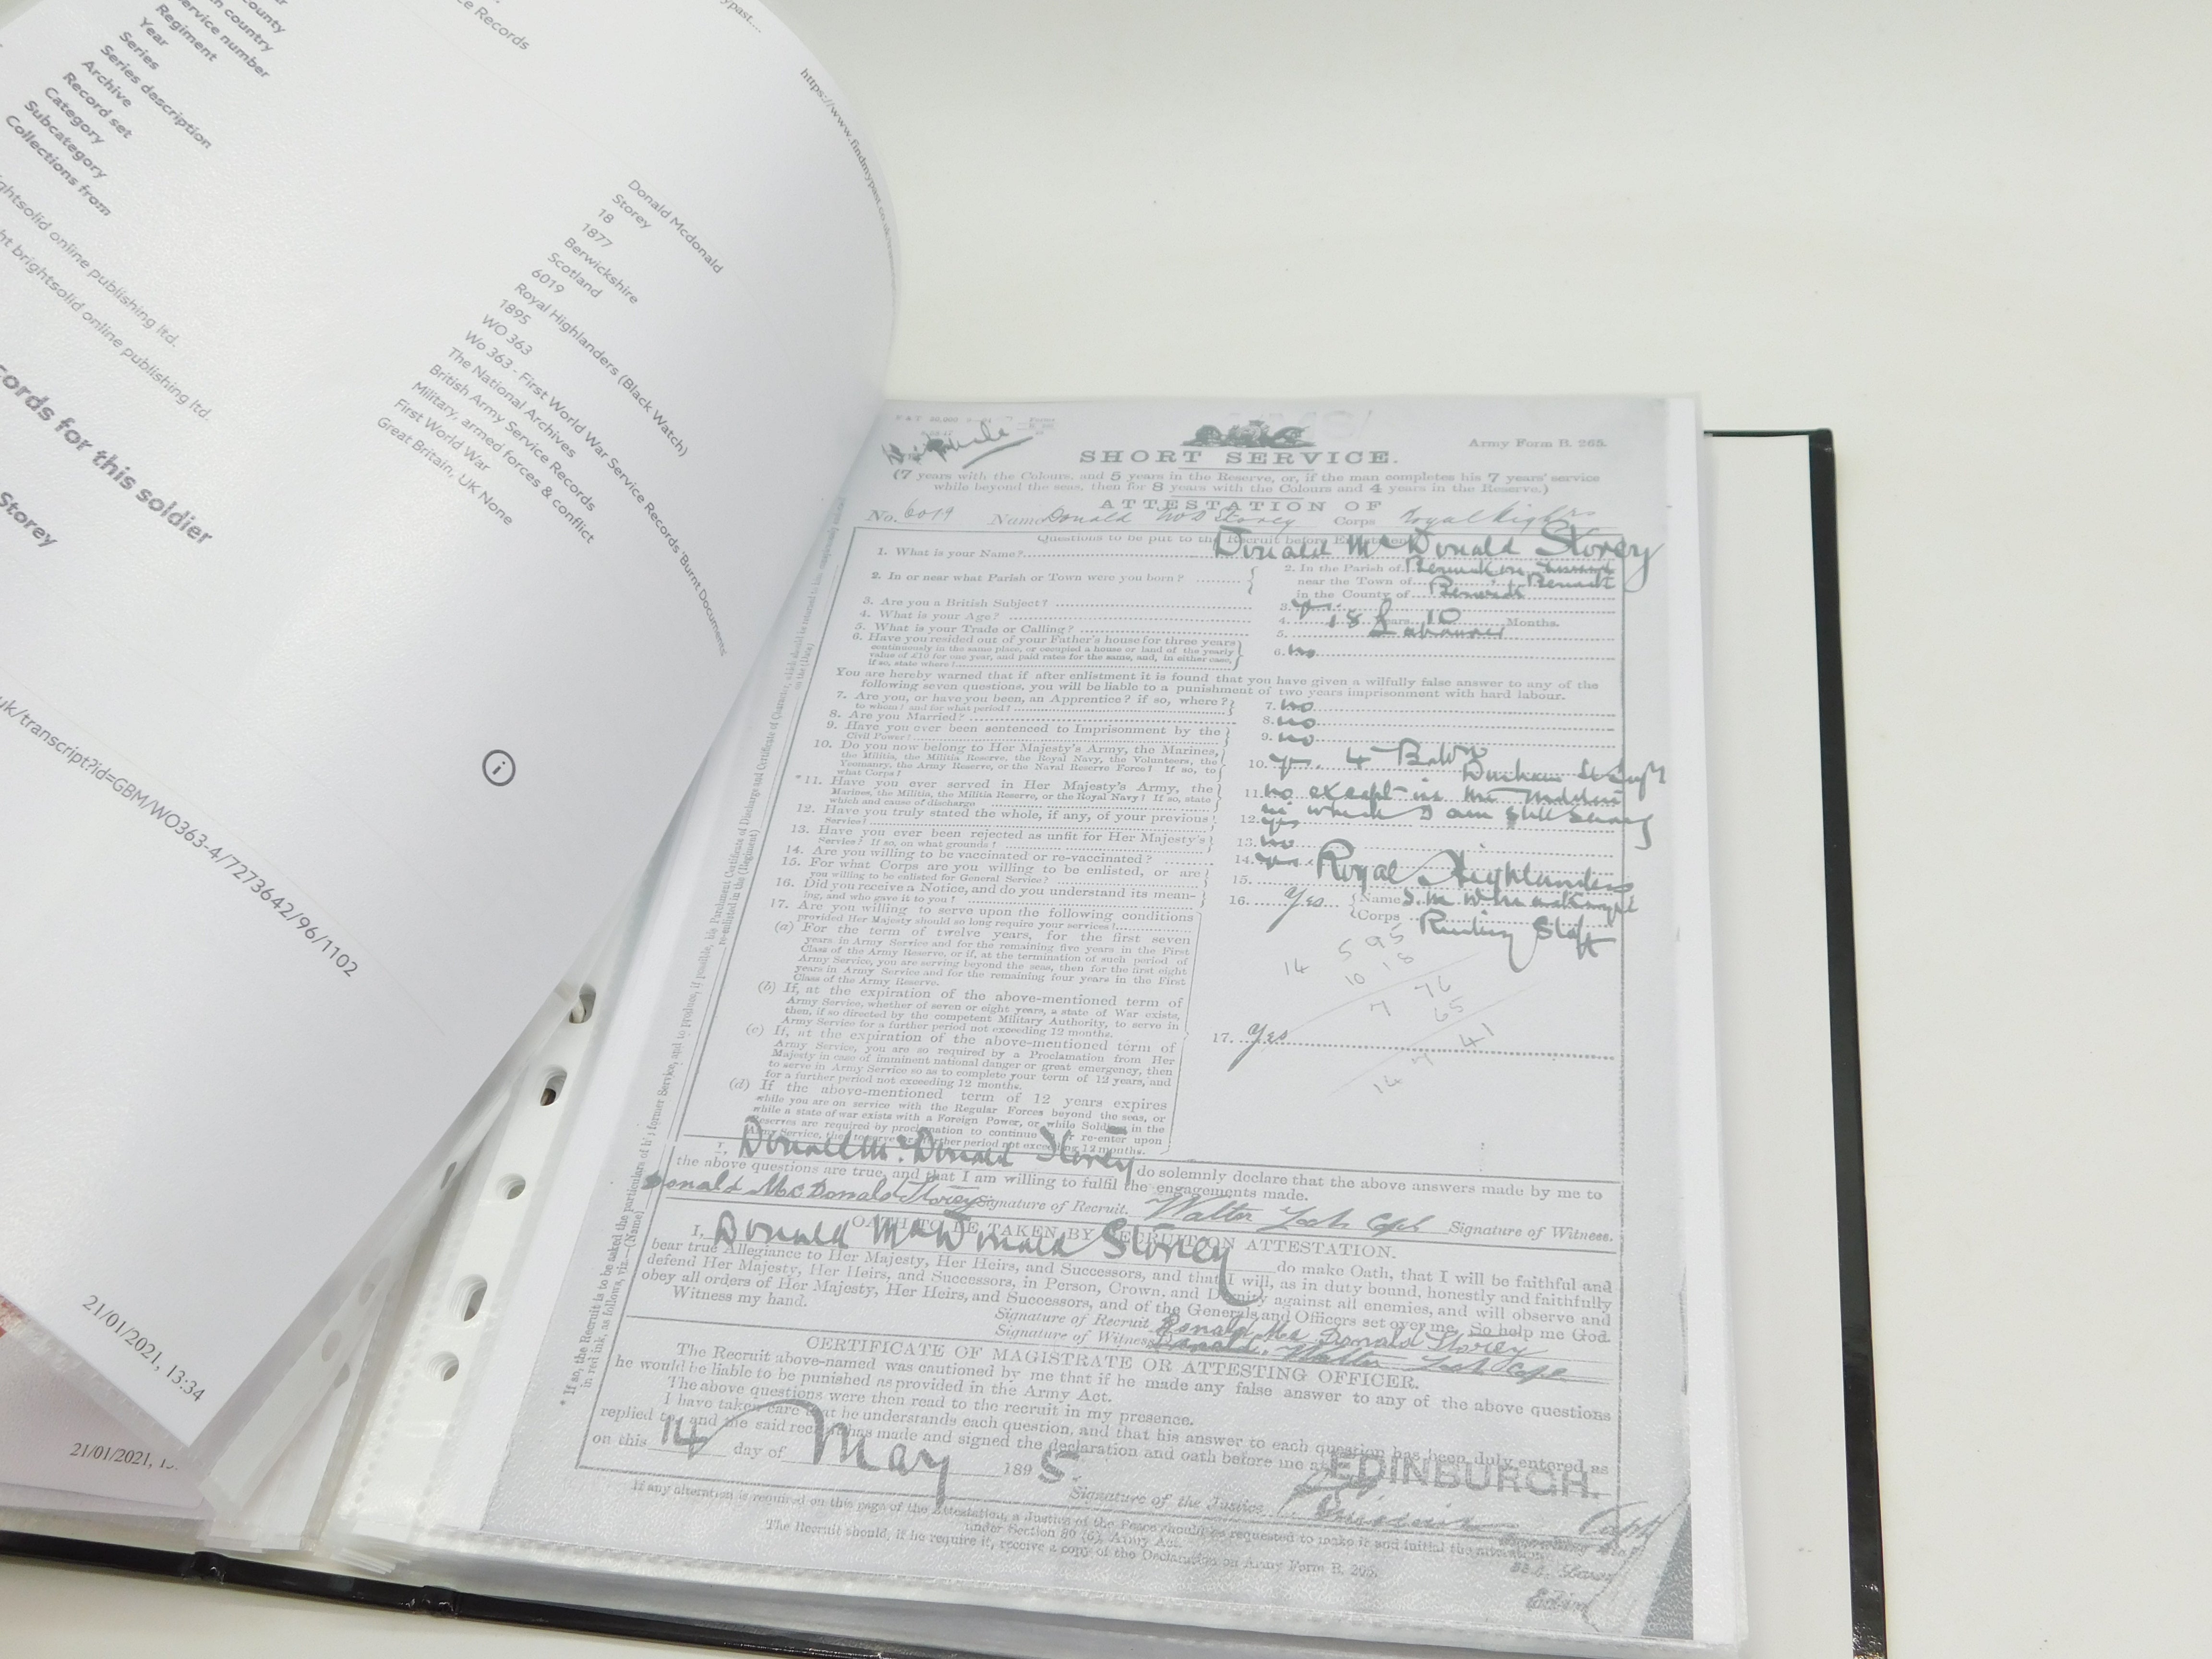 county
country
service number
Regiment
Year
Series
Series description
Archive
Record set
Category
Subcategory
Collections from
ce Records
ypast....
https://www.findmypast.co.uk/
Donald Mcdonald
Storey
18
1877
Berwickshire
Scotland
6019
Royal Highlanders (Black Watch)
1895
WO 363
Wo 363 - First World War Service Records 'Burnt Documents
The National Archives
British Army Service Records
Military, armed forces & conflict
First World War
Great Britain, UK None
ghtsolid online publishing ltd.
ht brightsolid online publishing ltd.
cords for this soldier
Storey
uk/transcript?id=GBM/WO363-4/7273642/96/1102
i
21/01/2021, 13:34
21/01/2021, 13
Duplicate
Army Form B. 265.
SHORT SERVICE.
(7 years with the Colours, and 5 years in the Reserve, or, if the man completes his 7 years' service
while beyond the seas, then for 8 years with the Colours and 4 years in the Reserve.)
ATTESTATION OF
No. 6019 Name Donald McD Storey Corps Royal Highrs
Questions to be put to the Recruit before Enlistment
1. What is your Name? Donald McDonald Storey
2. In or near what Parish or Town were you born? 2. In the Parish of Berwick on
near the Town of Berwick
in the County of Berwick
3. Are you a British Subject? 3. Yes
4. What is your Age? 4. 18 Years 10 Months.
5. What is your Trade or Calling? 5. Labourer
6. Have you resided out of your Father's house for three years 6. no
continuously in the same place, or occupied a house or land of the yearly
value of £10 for one year, and paid rates for the same, and, in either case,
if so, state where?
You are hereby warned that if after enlistment it is found that you have given a wilfully false answer to any of the
following seven questions, you will be liable to a punishment of two years imprisonment with hard labour.
7. Are you, or have you been, an Apprentice? if so, where? 7. no
to whom? and for what period?
8. Are you Married? 8. no
9. Have you ever been sentenced to Imprisonment by the 9. no
Civil Power?
10. Do you now belong to Her Majesty's Army, the Marines, 10. yes. 4 Battn
the Militia, the Militia Reserve, the Royal Navy, the Volunteers, the Durham Lt Infy
Yeomanry, the Army Reserve, or the Naval Reserve Force? If so, to
what Corps?
*11. Have you ever served in Her Majesty's Army, the 11. no except in the Militia
Marines, the Militia, the Militia Reserve, or the Royal Navy? If so, state in which I am still serving
which and cause of discharge
12. Have you truly stated the whole, if any, of your previous 12. yes
Service?
13. Have you ever been rejected as unfit for Her Majesty's 13. no
Service? If so, on what grounds?
14. Are you willing to be vaccinated or re-vaccinated? 14. yes
15. For what Corps are you willing to be enlisted, or are 15. Royal Highlanders
you willing to be enlisted for General Service?
16. Did you receive a Notice, and do you understand its mean- 16. Yes Name S.M.
ing, and who gave it to you? Corps Recruiting Staff
17. Are you willing to serve upon the following conditions
provided Her Majesty should so long require your services?
(a) For the term of twelve years, for the first seven
years in Army Service and for the remaining five years in the First
Class of the Army Reserve, or if, at the termination of such period of
Army Service, you are serving beyond the seas, then for the first eight
years in Army Service and for the remaining four years in the First
Class of the Army Reserve.
(b) If, at the expiration of the above-mentioned term of
Army Service, whether of seven or eight years, a state of War exists,
then, if so directed by the competent Military Authority, to serve in
Army Service for a further period not exceeding 12 months.
(c) If, at the expiration of the above-mentioned term of
Army Service, you are so required by a Proclamation from Her
Majesty in case of imminent national danger or great emergency, then
to serve in Army Service so as to complete your term of 12 years, and
for a further period not exceeding 12 months.
(d) If the above-mentioned term of 12 years expires
while you are on service with the Regular Forces beyond the seas, or
while a state of war exists with a Foreign Power, or while Soldiers in the
Reserves are required by proclamation to continue or re-enter upon
Army Service, then to serve for a further period not exceeding 12 months.
14 5 95
10 18
7 76
65
14 7 41
17. Yes
I, Donald McDonald Storey do solemnly declare that the above answers made by me to
the above questions are true, and that I am willing to fulfil the engagements made.
Donald McDonald Storey Signature of Recruit. Walter Capt Signature of Witness.
OATH TO BE TAKEN BY RECRUIT ON ATTESTATION.
I, Donald McDonald Storey do make Oath, that I will be faithful and
bear true Allegiance to Her Majesty, Her Heirs, and Successors, and that I will, as in duty bound, honestly and faithfully
defend Her Majesty, Her Heirs, and Successors, in Person, Crown, and Dignity against all enemies, and will observe and
obey all orders of Her Majesty, Her Heirs, and Successors, and of the Generals and Officers set over me. So help me God.
Witness my hand.
Signature of Recruit Donald Mc Donald Storey
Signature of Witness Donald. Walter Capt
CERTIFICATE OF MAGISTRATE OR ATTESTING OFFICER.
The Recruit above-named was cautioned by me that if he made any false answer to any of the above questions
he would be liable to be punished as provided in the Army Act.
The above questions were then read to the recruit in my presence.
I have taken care that he understands each question, and that his answer to each question has been duly entered as
replied to, and the said recruit has made and signed the declaration and oath before me at EDINBURGH.
on this 14 day of May 1895.
Signature of the Justice Capt
If any alteration is required on this page of the Attestation, a Justice of the Peace should be requested to make it and initial the alteration
under Section 80 (6), Army Act.
The Recruit should, if he require it, receive a copy of the Declaration on Army Form B. 265.
Edin
* If so, the Recruit is to be asked the particulars of his former Service, and to produce, if possible, his Parchment Certificate of Discharge and Certificate of Character, which should be returned to him
in red ink, as follows, viz.—(Name) re-enlisted in the (Regiment) on the (Date)